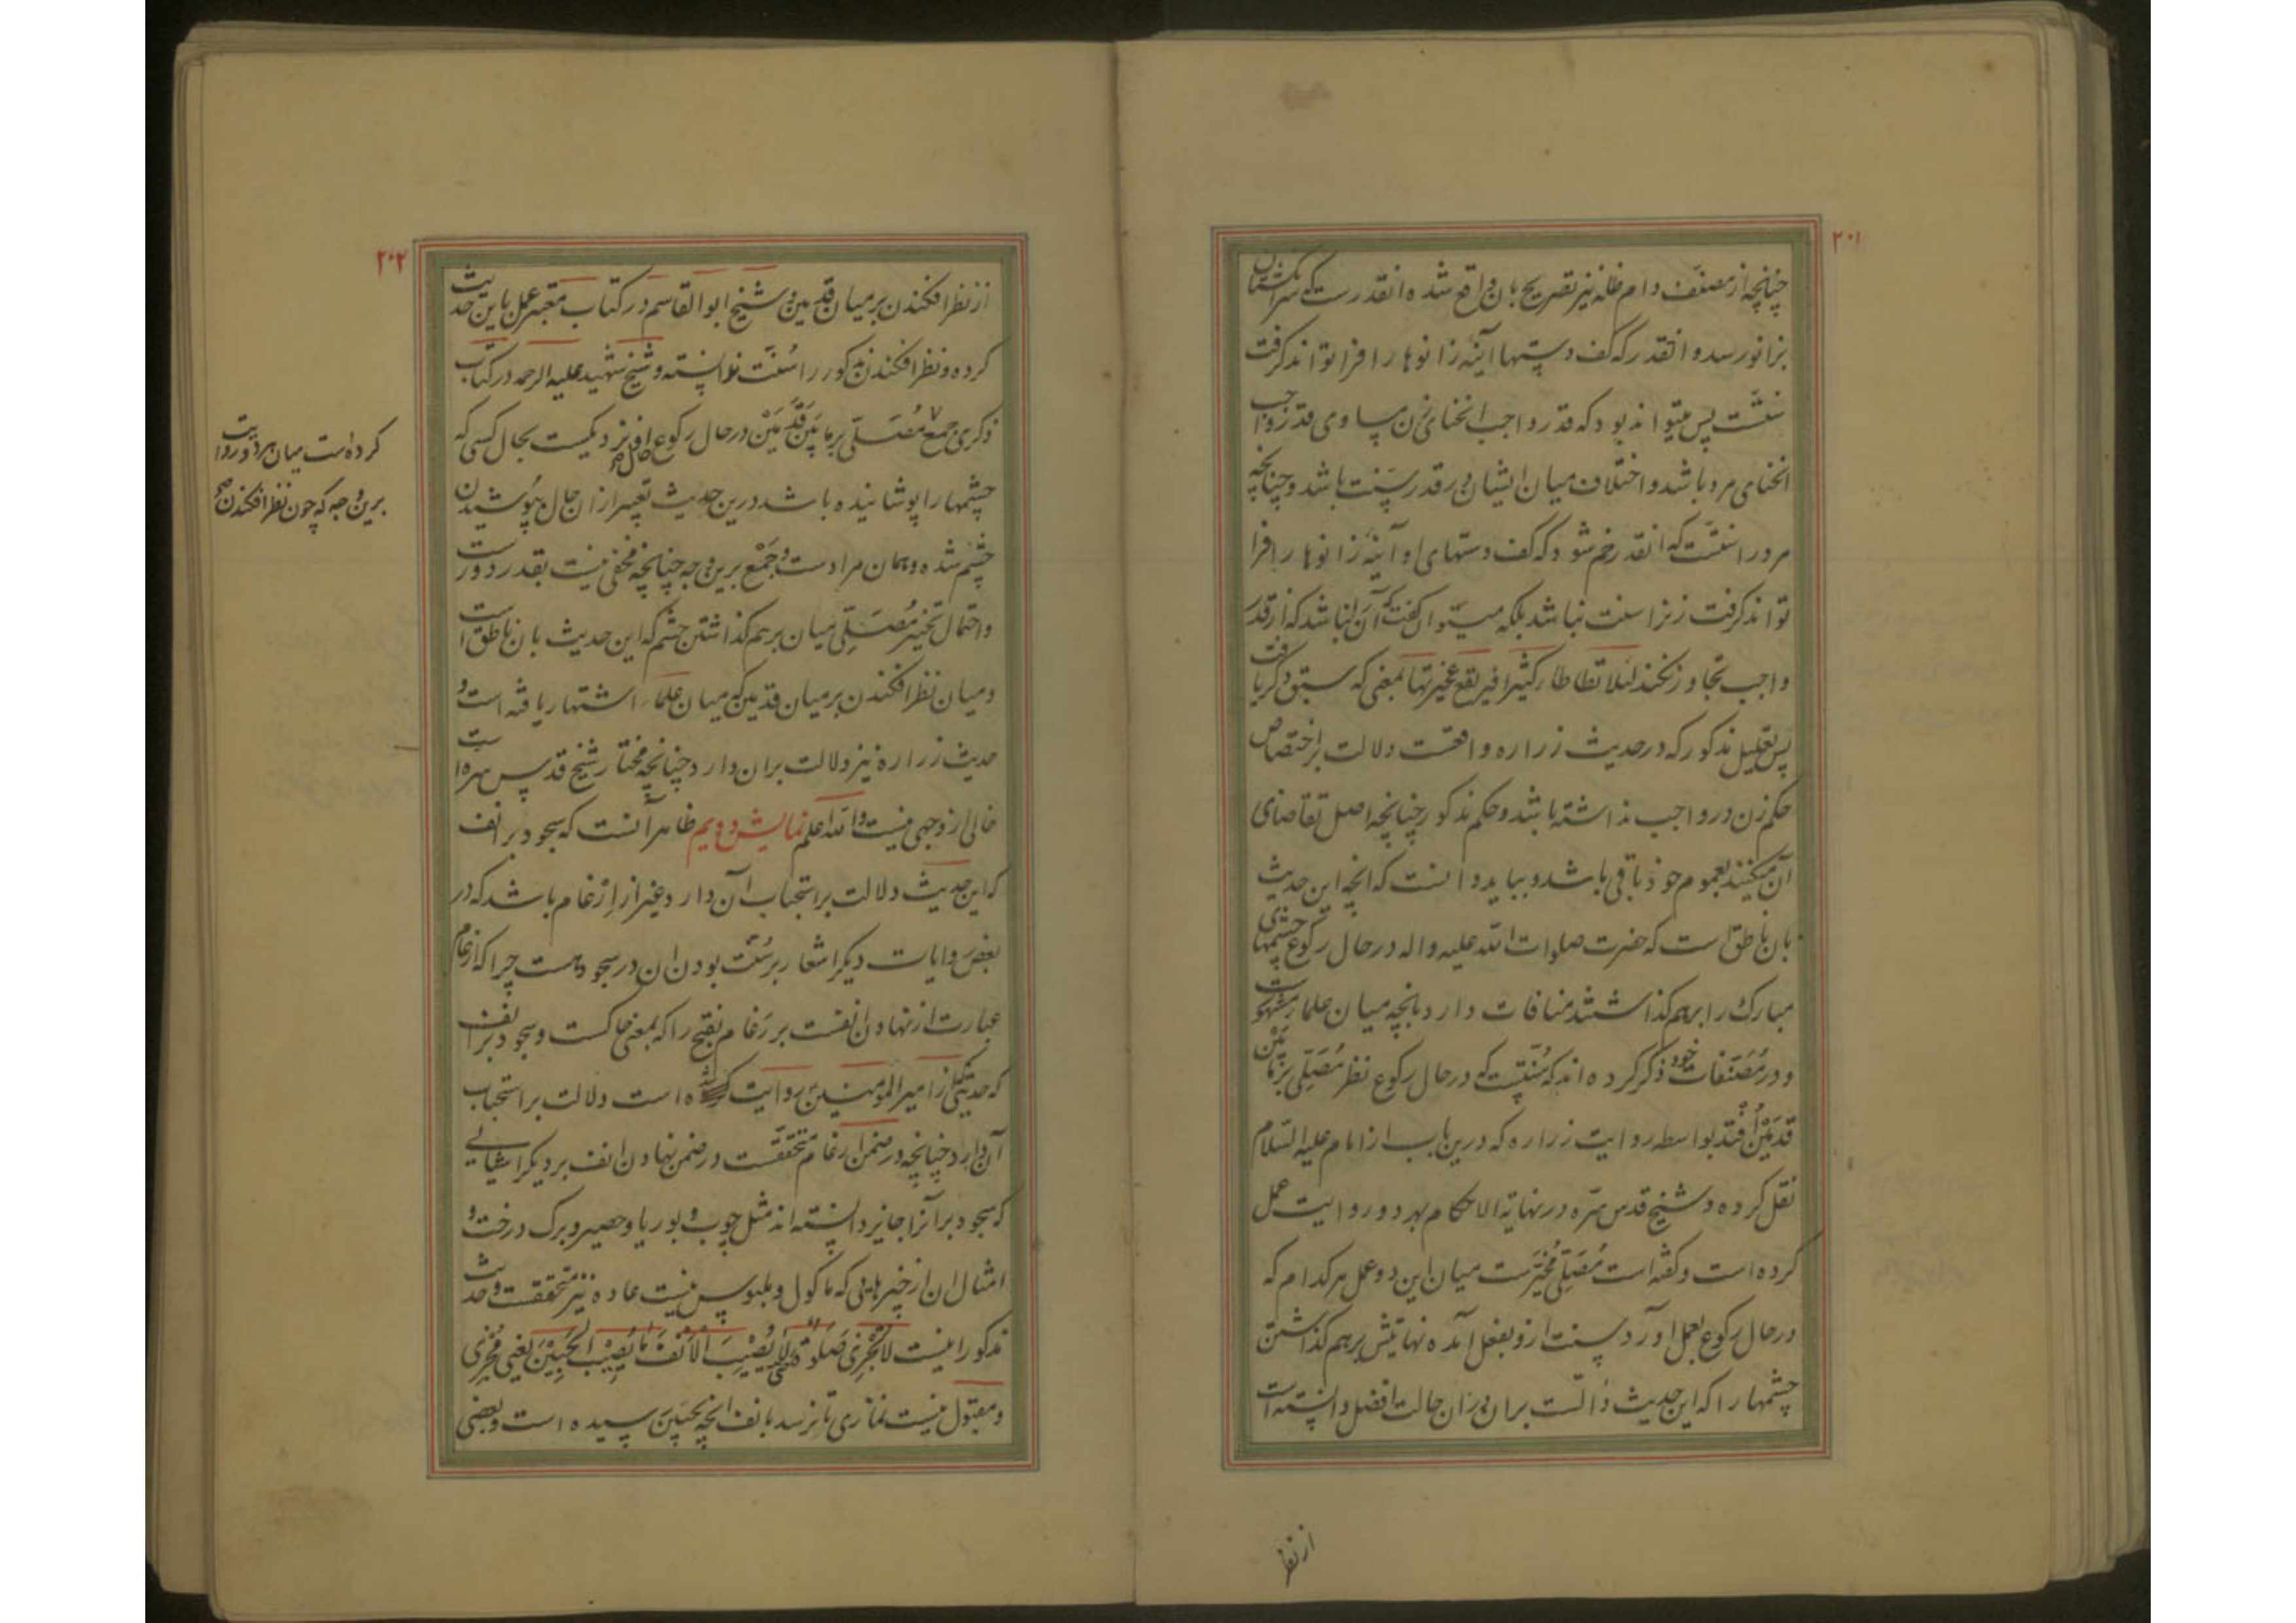 ۲۰۱
چنانچه از مصنف دام ظله نیز تصریح بان واقع شده انقدرست که سر انگشتان
بزانو رسد و انقدر که کف دستها اینه زانوها را فرا تواند گرفت
سنتست پس میتواند بود که قدر واجب انحنای زن مساوی قدر واجب
انحنای مرد باشد و اختلاف میان ایشان در قدر سنت باشد و چنانچه
مرد را سنتست که انقدر خم شود که کف دستهای او آینه زانوها را فرا
تواند گرفت زنرا سنت نباشد بلکه میتوان گفت که آن انباشد که از قدر
واجب تجاوز نکند لئلا تطاطا کثیرا فیرتفع عجیزتها بمعنی که سبق ذکر یافت
پس تعلیل مذکور که در حدیث زراره واقعست دلالت بر اختصاص
حکم زن در واجب نداشته باشد و حکم مذکور چنانچه اصل تقاضای
آن میکند بعموم خود باقی باشد و بباید دانست که انچه این حدیث
بان ناطق است که حضرت صلوات الله علیه واله در حال رکوع چشمهای
مبارک را برهم گذاشتند منافات دارد بانچه میان علما مشهورست
و در مصنفات خود ذکر کرده اند که سنتست که در حال رکوع نظر مصلی بر مابین
قدمین افتد بواسطه روایت زراره که درین باب از امام علیه السلام
نقل کرده و شیخ قدس سره در نهایة الاحکام بهر دو روایت عمل
کرده است و گفته است مصلی مخیرست میان این دو عمل هر کدام که
در حال رکوع بعمل اورد سنت ازو بفعل آمده نهایتش برهم گذاشتن
چشمها را که این حدیث دالست بران دران حالت افضل دانسته است
از نظر
۲۰۲
از نظر افکندن بر میان قدمین و شیخ ابو القاسم در کتاب معتبر عمل باین حدیث
کرده و نظر افکندن مذکور را سنت ندانسته و شیخ شهید علیه الرحمه در کتاب
ذکری جمع مصلی بر مابین قدمین در حال رکوع افتد نزدیکست بحال کسی که
چشمها را پوشانیده باشد درین حدیث تعبیر ازان حال بپوشیدن
چشم شده و همان مرادست و جمع برین وجه چنانچه مخفی نیست بقدر دورست
واحتمال تخییر مصلی میان برهم گذاشتن چشم که این حدیث بان ناطق است
و میان نظر افکندن بر میان قدمین که میان علما اشتهار یافته است و
حدیث زراره نیز دلالت بران دارد چنانچه مختار شیخ قدس سره است
خالی از وجهی نیست والله اعلم نمایش دویم ظاهر آنست که سجود بر انف
که این حدیث دلالت بر استحباب آن دارد غیر از ارغام باشد که در
بعض روایات دیگر اشعار بر سنت بودن ان در سجود هست چرا که ارغام
عبارت از نهادن انفست بر رغام بفتح را که بمعنی خاکست و سجود بر انف
که حدیثی که از امیر المومنین روایت شده است دلالت بر استحباب
آن دارد چنانچه در ضمن ارغام متحققست در ضمن نهادن انف بر دیگر اشیائی
که سجود بر آنرا جایز دانسته اند مثل چوب و بوریا و حصیر و برک درخت و
امثال ان از چیزهایی که ماکول و ملبوس نیست عاده نیز متحققست و حدیث
مذکور اینست لا تُجزی صَلوة لا یُصیب الانف ما یُصیب الجبین یعنی مجزی
و مقبول نیست نمازی تا نرسد بانف انچه بجبین رسیده است و بعضی
کرده است میان هر دو روایت
برین وجه که چون نظر افکندن